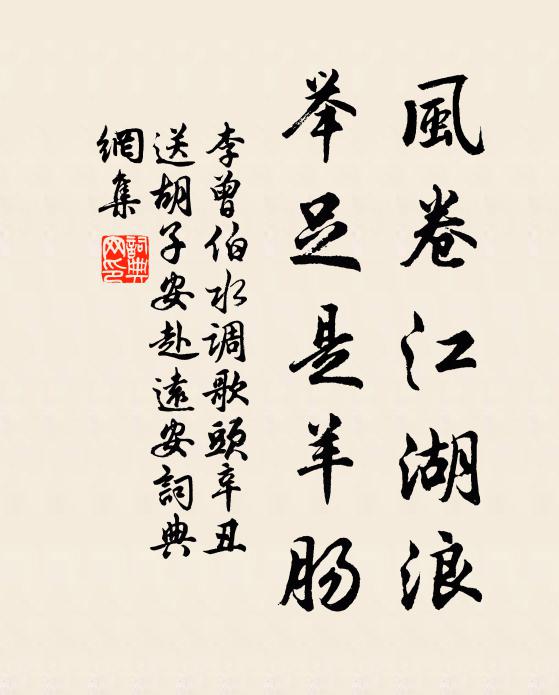 風卷江湖浪
举足是羊肠
李曾伯水调歌頭辛丑
送胡子安赴遠安詞典
網集
詞典网印